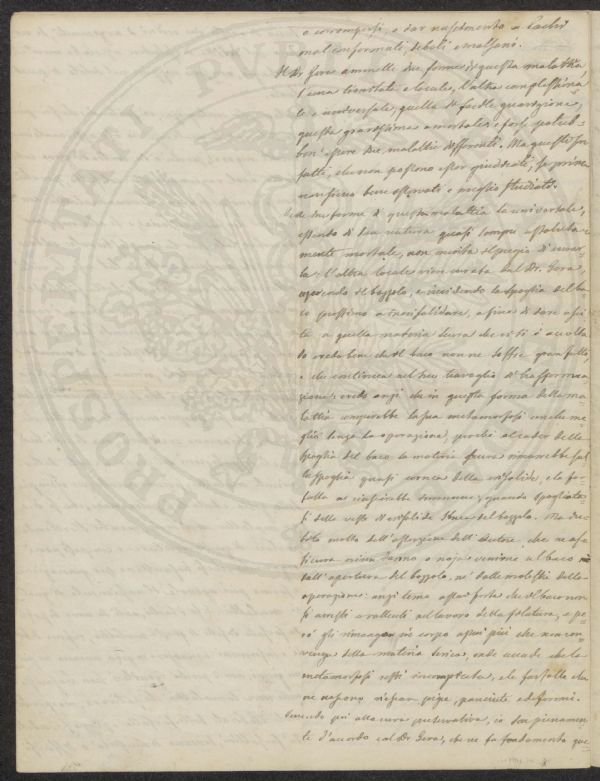 o corrompersi, o dar nascimento a bachi
mal conformati, deboli e malsani.
Il Dr Gera ammette due forme di questa malattia,
l'una limitata e locale, l'altra
e universale, quella di facile guarigione,
questa gravissima e mortale; e forse potreb-
bon essere due malattie differenti. Ma questi son
fatti, che non possono esser giudicati, se prima
non sieno bene osservati e meglio studiati.
due forme di questa malattia la universale,
essendo di sua natura quasi sempre assoluta-
mente mortale, non merita il pregio di curar-
la: l'altra locale vien curata dal Dr. Gera,
aprendo il bozzolo, e incidendo la spoglia del ba-
co prossimo a incrisalidare, a fine di dare usci-
ta a quella materia scura che vi si è accolta.
Io credo bene che il baco non ne soffre gran fatto,
e che continua nel suo travaglio di trasforma-
zione: credo anzi che in questa forma della ma-
lattia compirebbe la sua metamorfosi anche me-
glio senza la operazione, perchè al cader della
spoglia del baco la materia scura rimarrebbe fra
la spoglia quasi cornea della crisalide, e la far-
falla ne uscirebbe quando spogliata-
si della veste di crisalide del bozzolo. Ma du-
bito molto dell'asserzione dell'autore che ne as-
sicura niun danno o noja venirne al baco nè
dall'apertura del bozzolo, nè dalla molestia della
operazione: anzi temo assai forte che il baco non
si arresti o rallenti nel lavoro della filatura, e pe-
rò gli rimanga in corpo assai più che non con-
venga della materia serica, onde accade che la
metamorfosi resti incompiuta, e le farfalle che
ne nascono riescan pigre, panciute e deformi.
Venendo poi alla cura preservativa, io son pienamen-
te d'accordo col Dr Gera, che ne fa fondamento que-
PROSPERITATI PUBLICAE